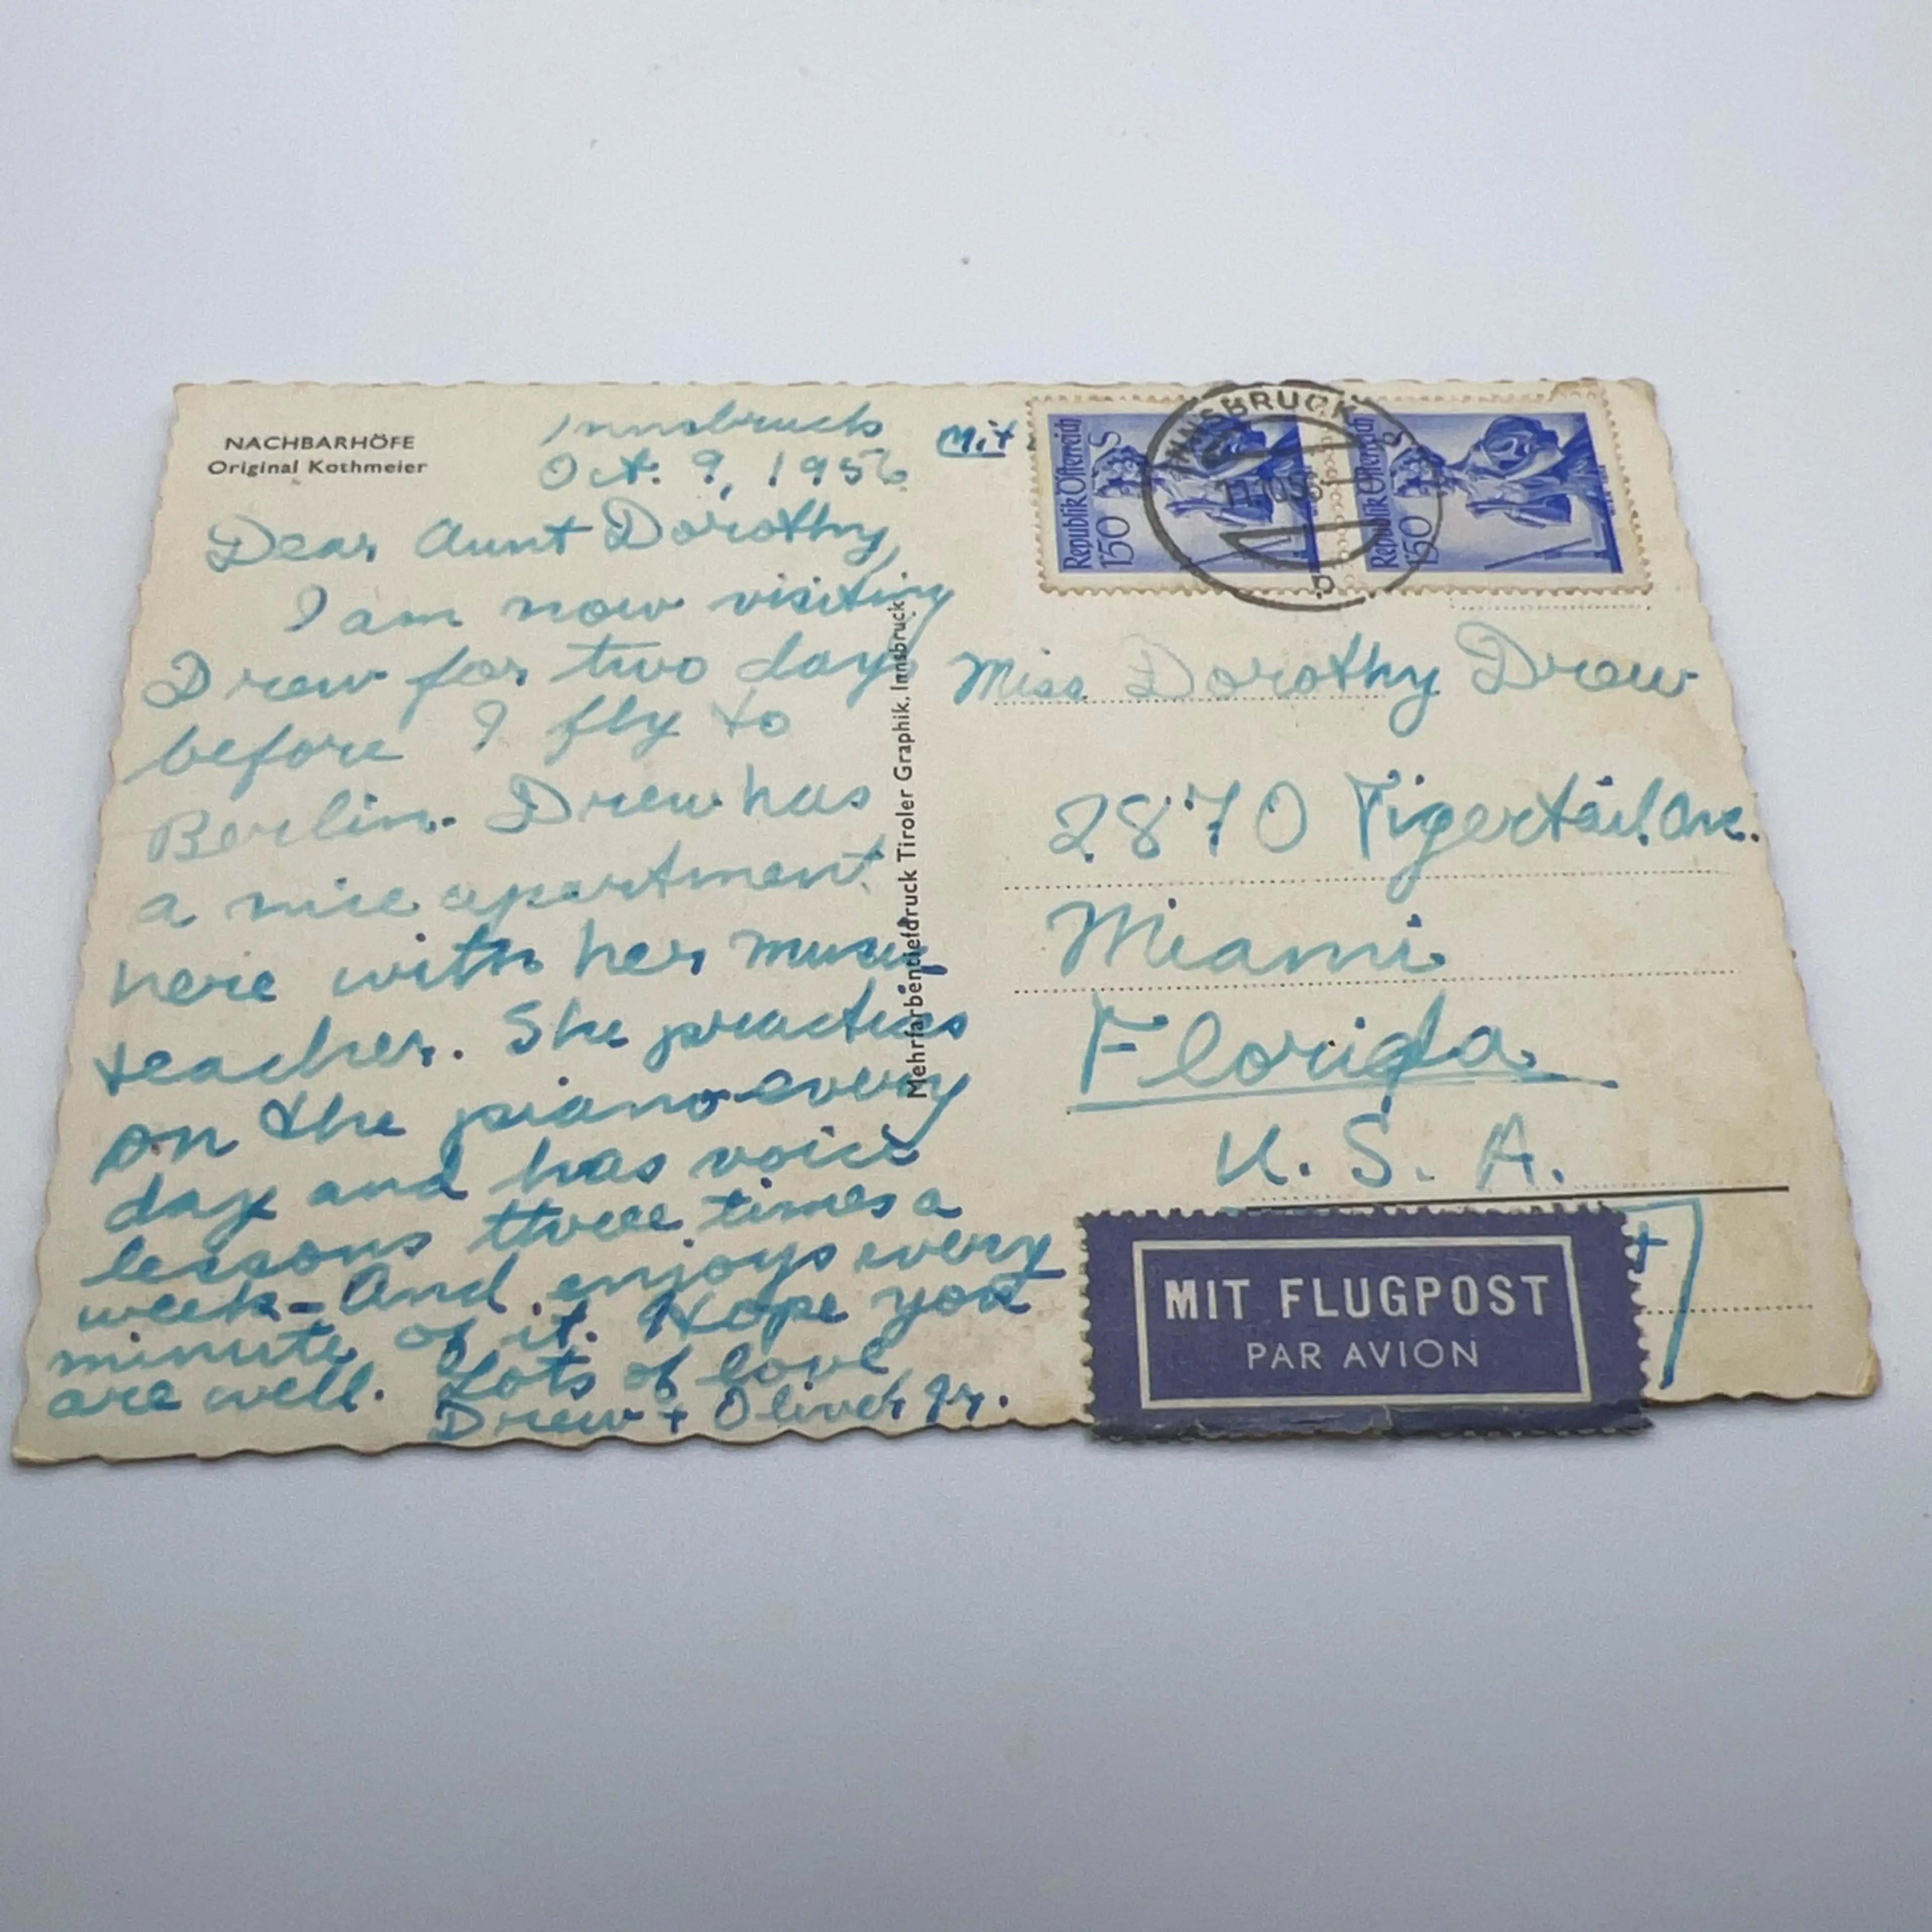 NACHBARHÖFE
Original Kothmeier
Innsbruck
Oct. 9, 1956
Dear Aunt Dorothy,
I am now visiting
Drew for two days
before I fly to
Berlin. Drew has
a nice apartment
here with her music
teacher. She practices
on the piano every
day and has voice
lessons three times a
week - And enjoys every
minute of it. Hope you
are well. Lots of love
Drew + Oliver Jr.
Mehrfarbentiefdruck Tiroler Graphik, Innsbruck
Mit
Republik Österreich
1'50 S
Republik Österreich
1'50 S
INNSBRUCK
Miss Dorothy Drew
2870 Tigertail Ave.
Miami
Florida
U. S. A.
MIT FLUGPOST
PAR AVION